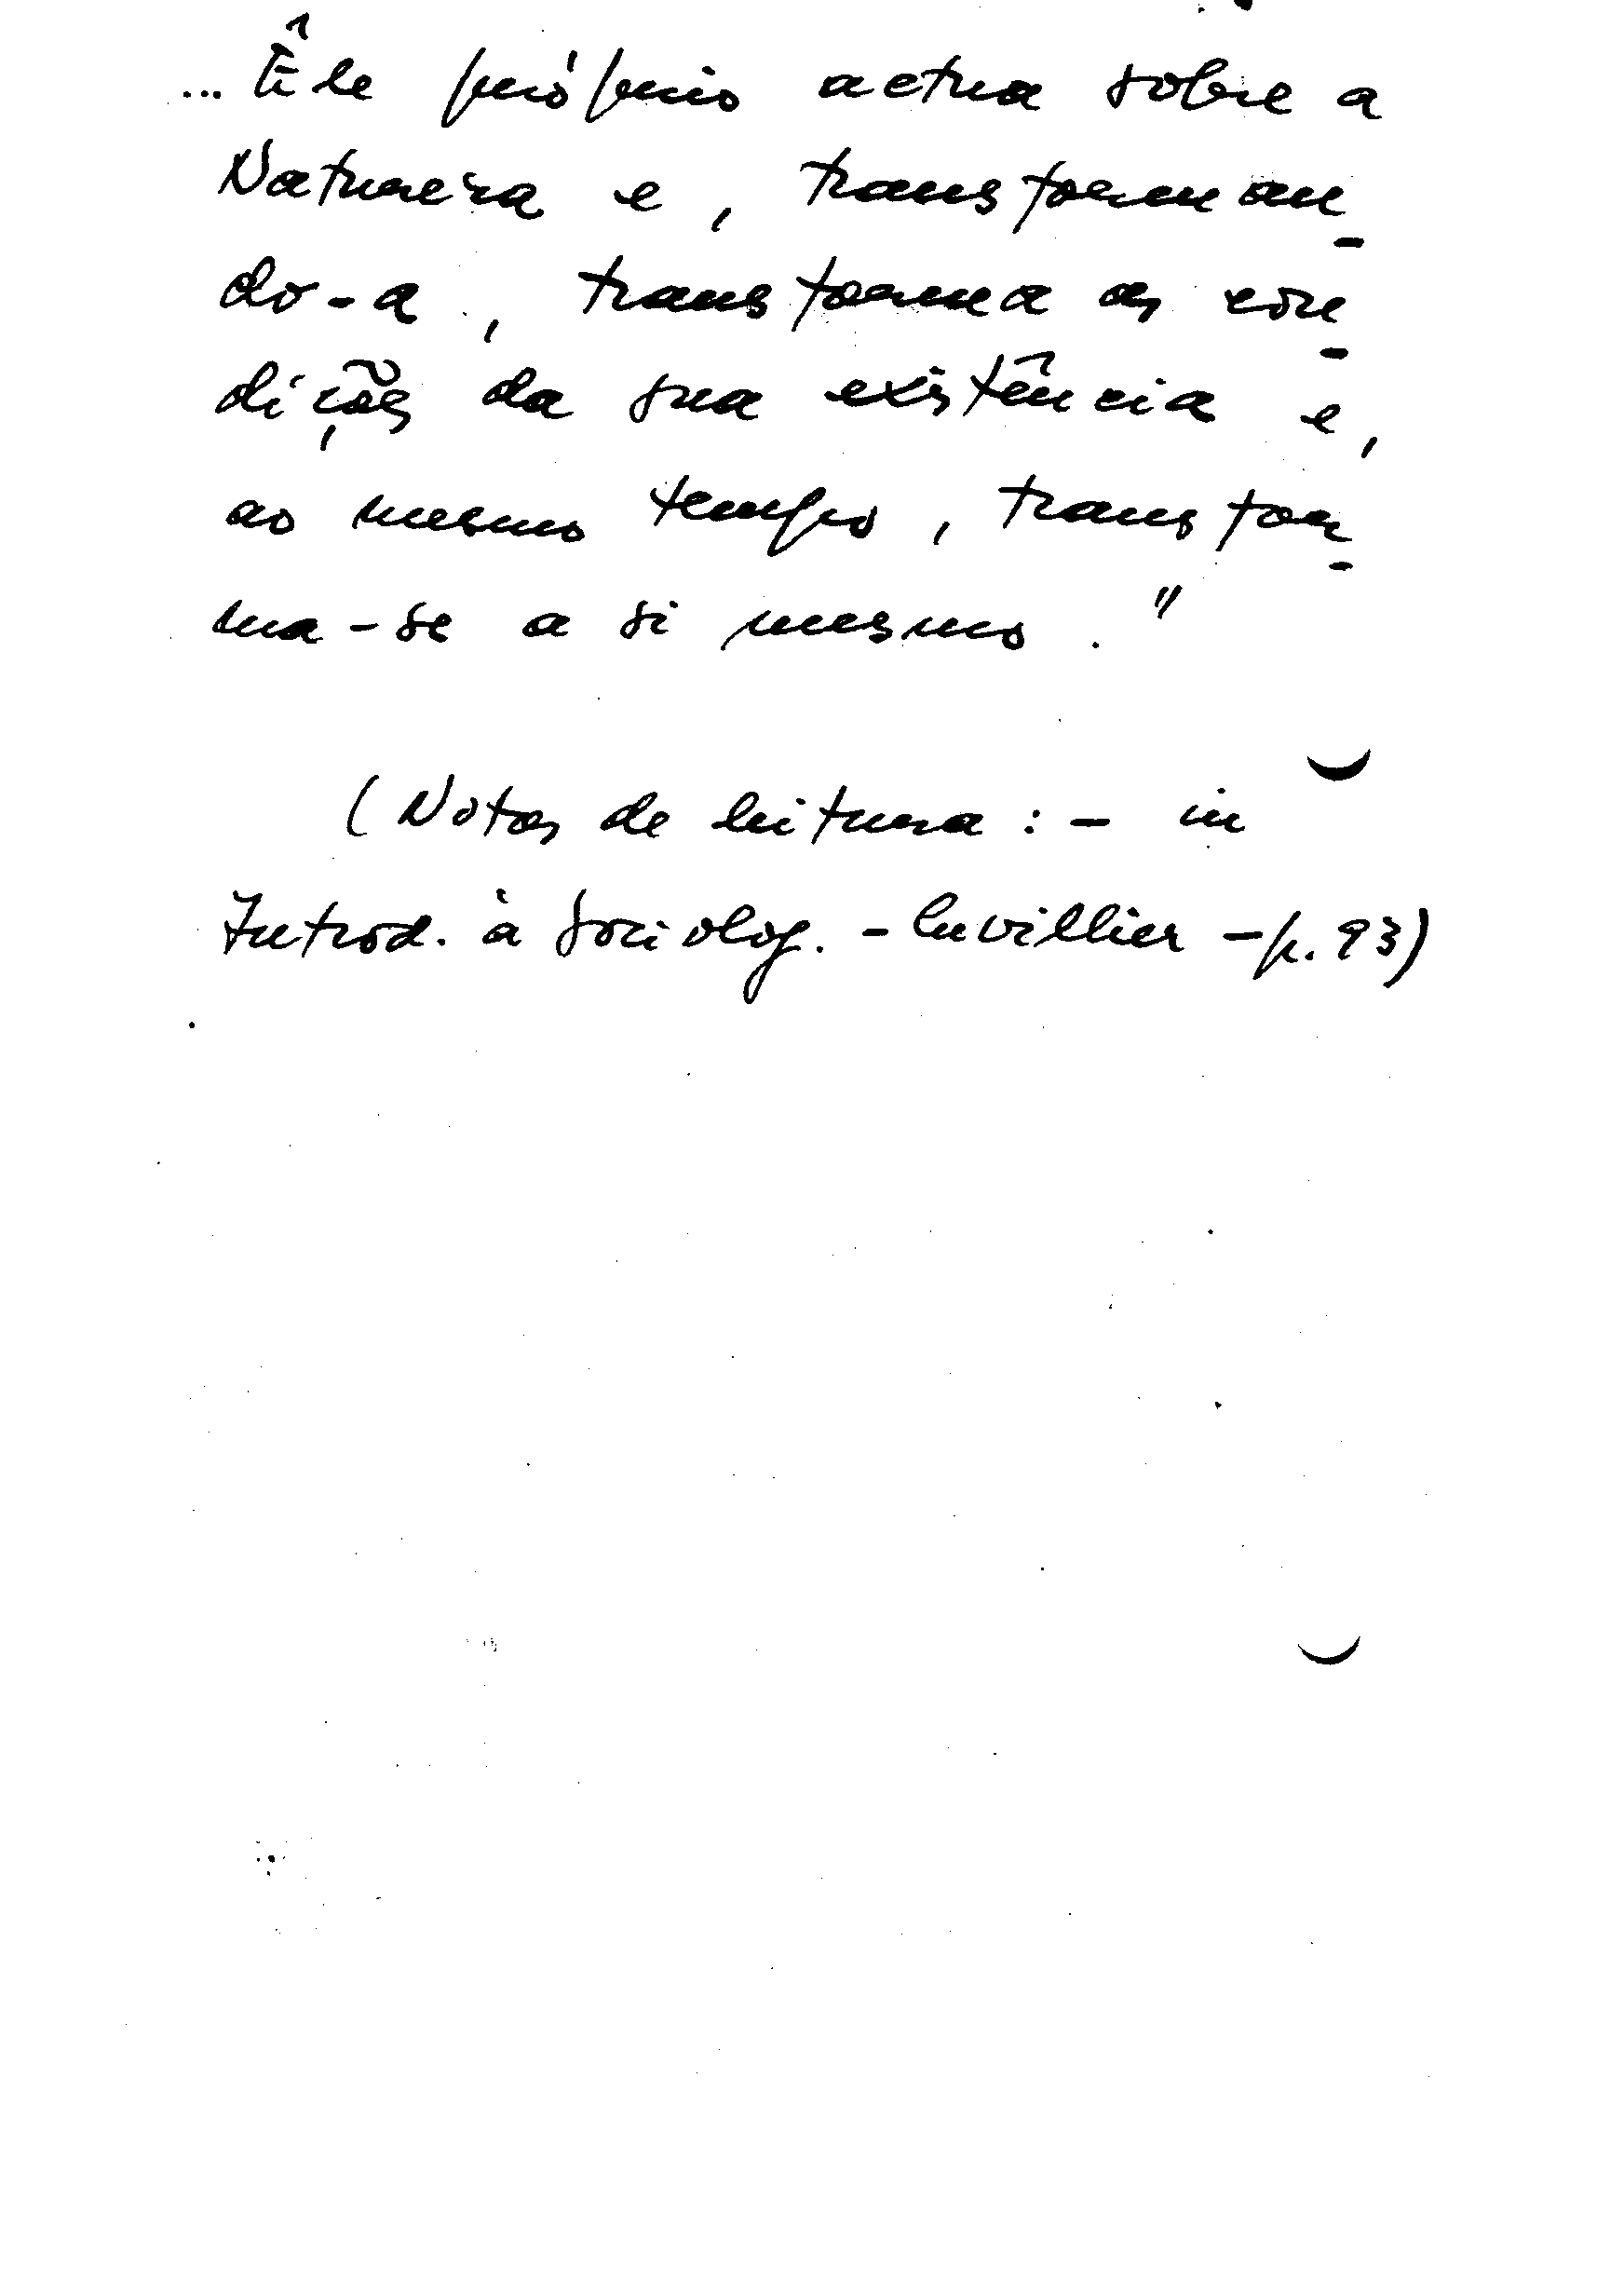 ... Êle próprio actua sobre a
Natureza e, transforman-
do-a, transforma as con-
dições da sua existência e,
ao mesmo tempo, transfor-
ma-se a si mesmo."
(Notas de leitura: - in
Introd. à Sociolog. - Cuvillier - p. 93)